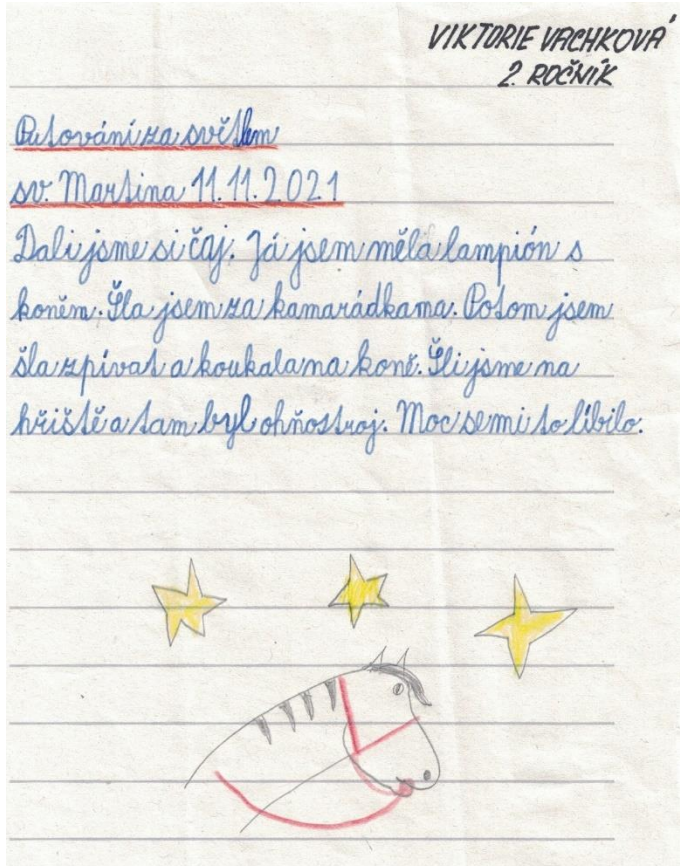 VIKTORIE VACHKOVÁ
2. ROČNÍK
Putování za světlem
sv. Martina 11.11.2021
Dali jsme si čaj. Já jsem měla lampión s
koněm. Šla jsem za kamarádkama. Potom jsem
šla zpívat a koukala na koně. Šli jsme na
hřiště a tam byl ohňostroj. Moc se mi to líbilo.